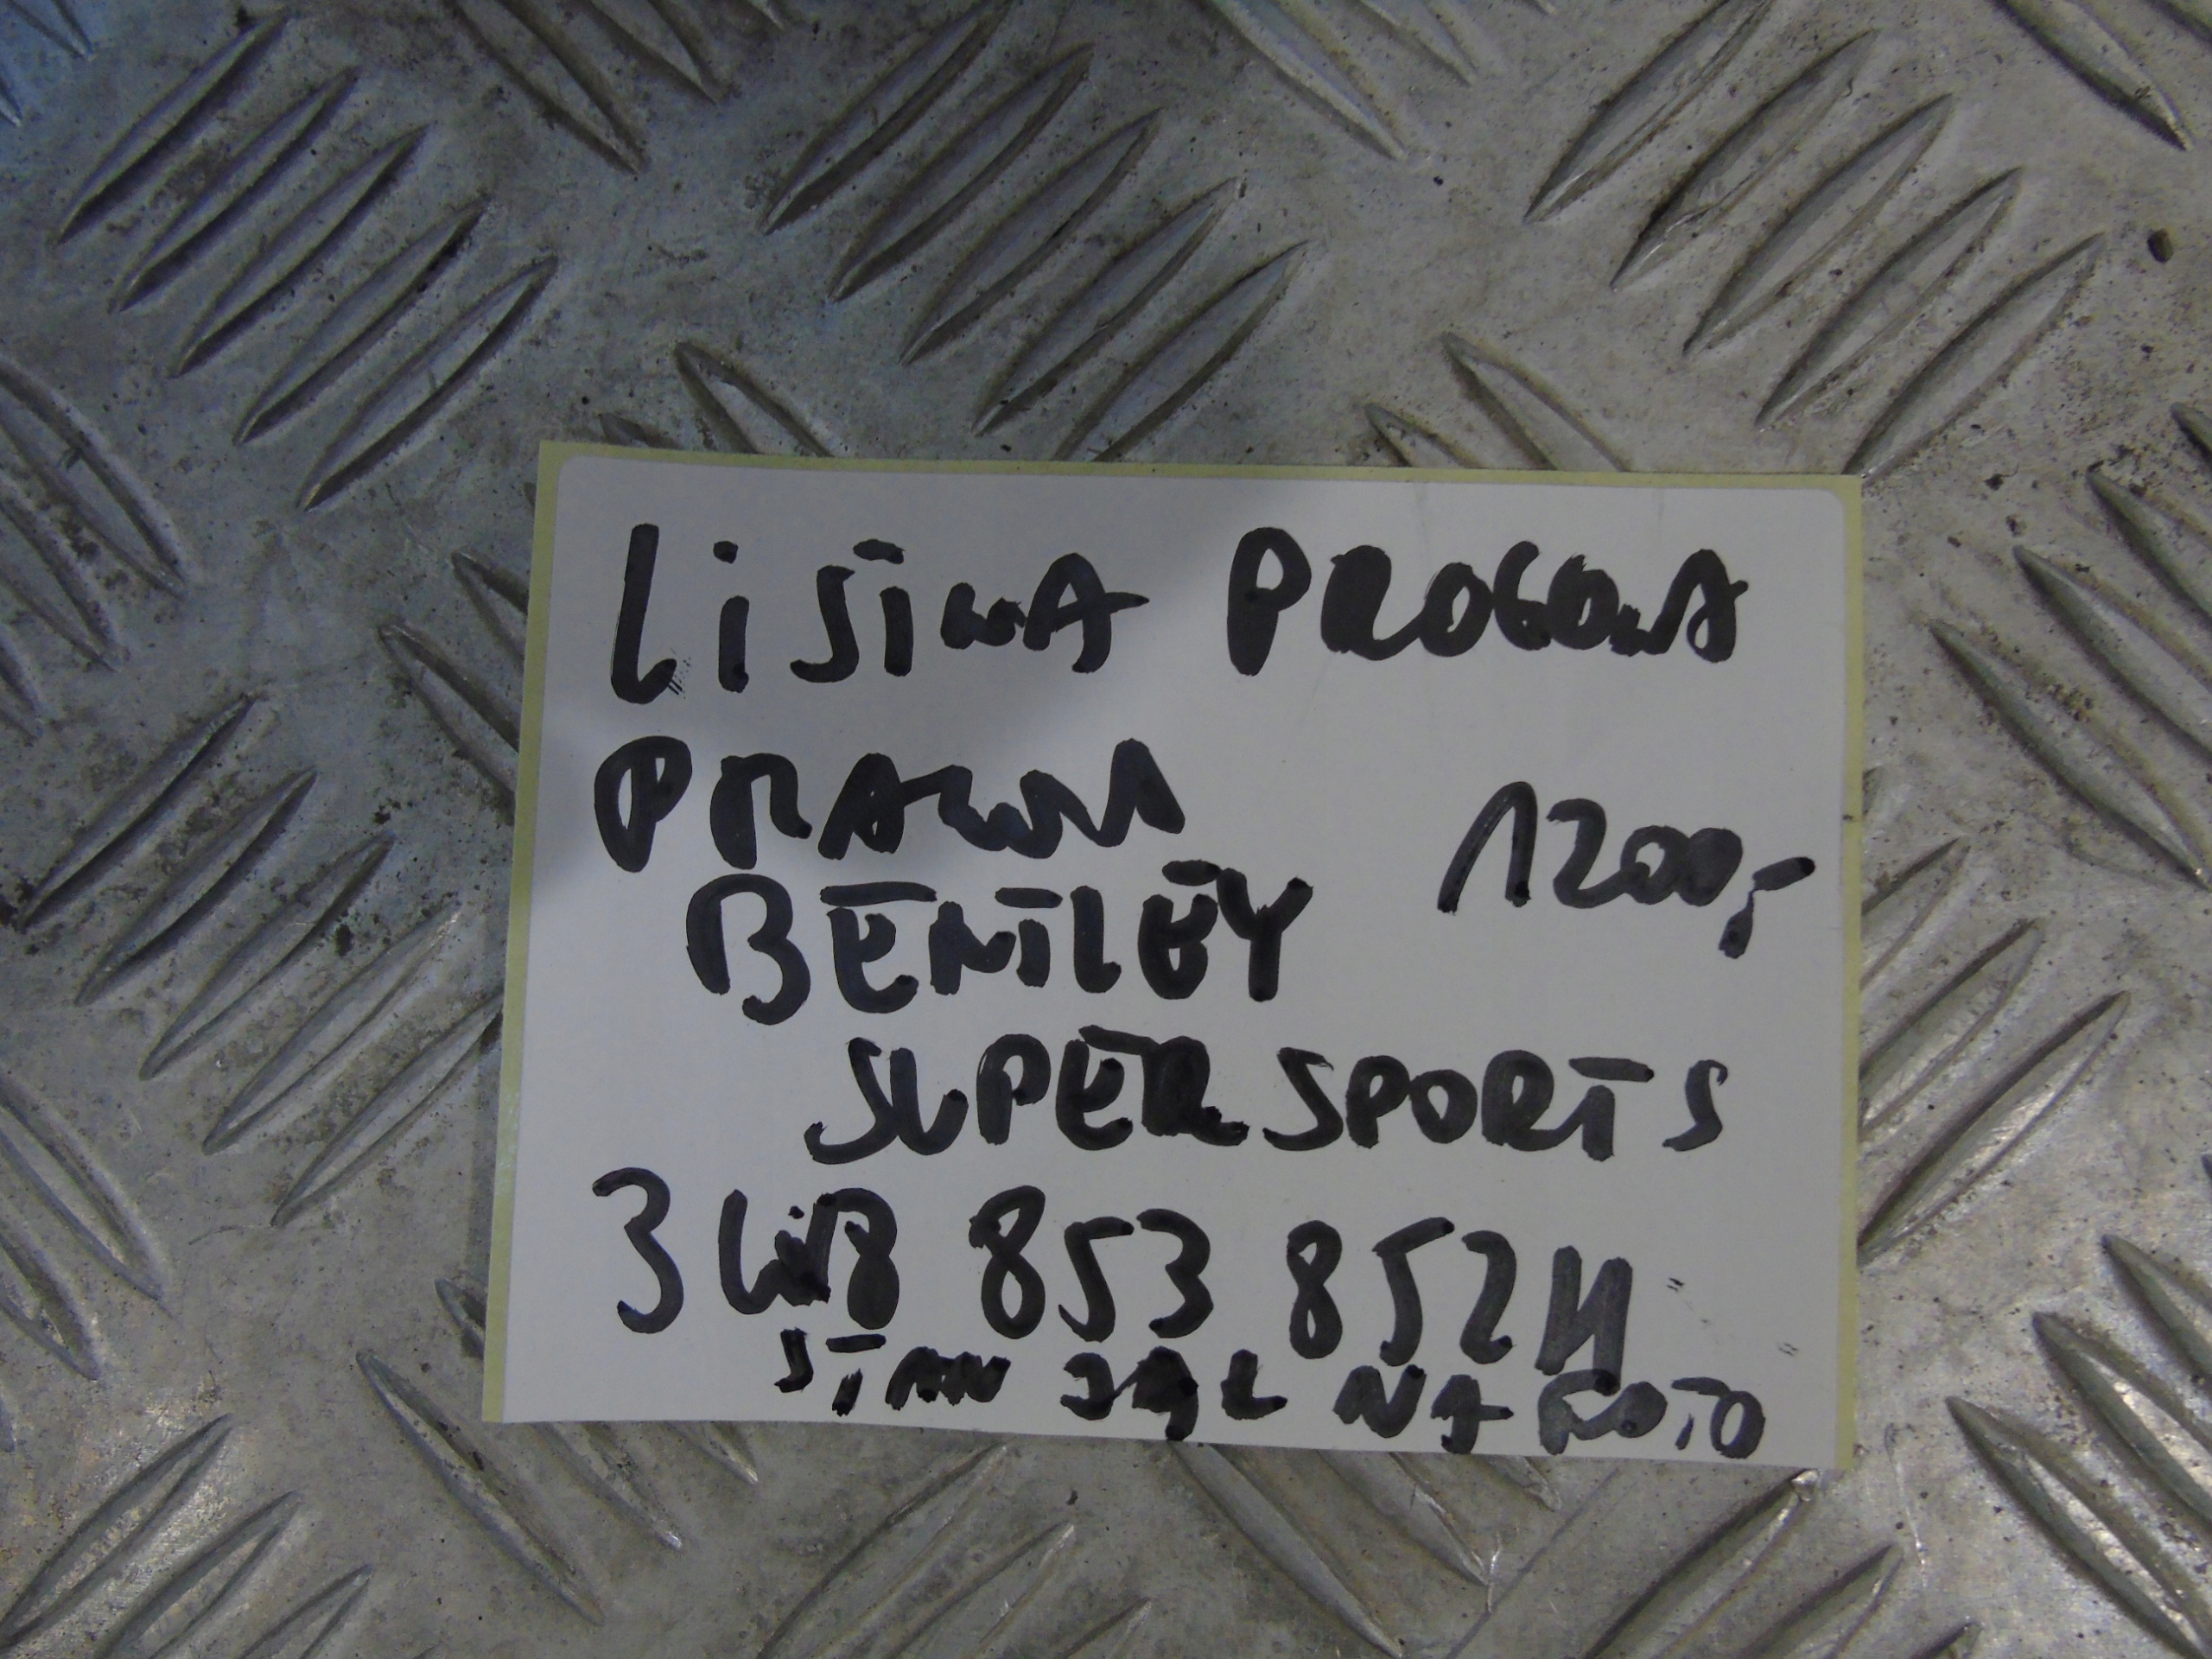 LISTWA PROGOWA
PRAWA 1200,-
BENTLEY
SUPERSPORTS
3W8 853 852H
STAN JAK NA FOTO